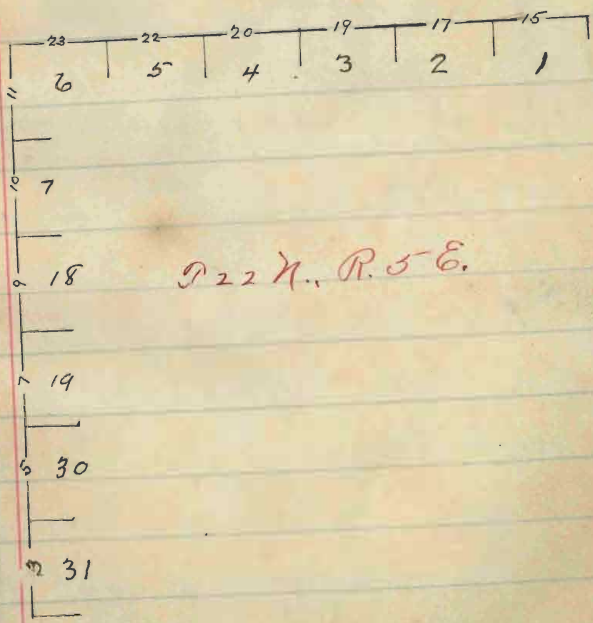 23 22 20 19 17 15
6 5 4 3 2 1
11
10 7
9 18 T 22 N., R. 5 E.
7 19
5 30
3 31